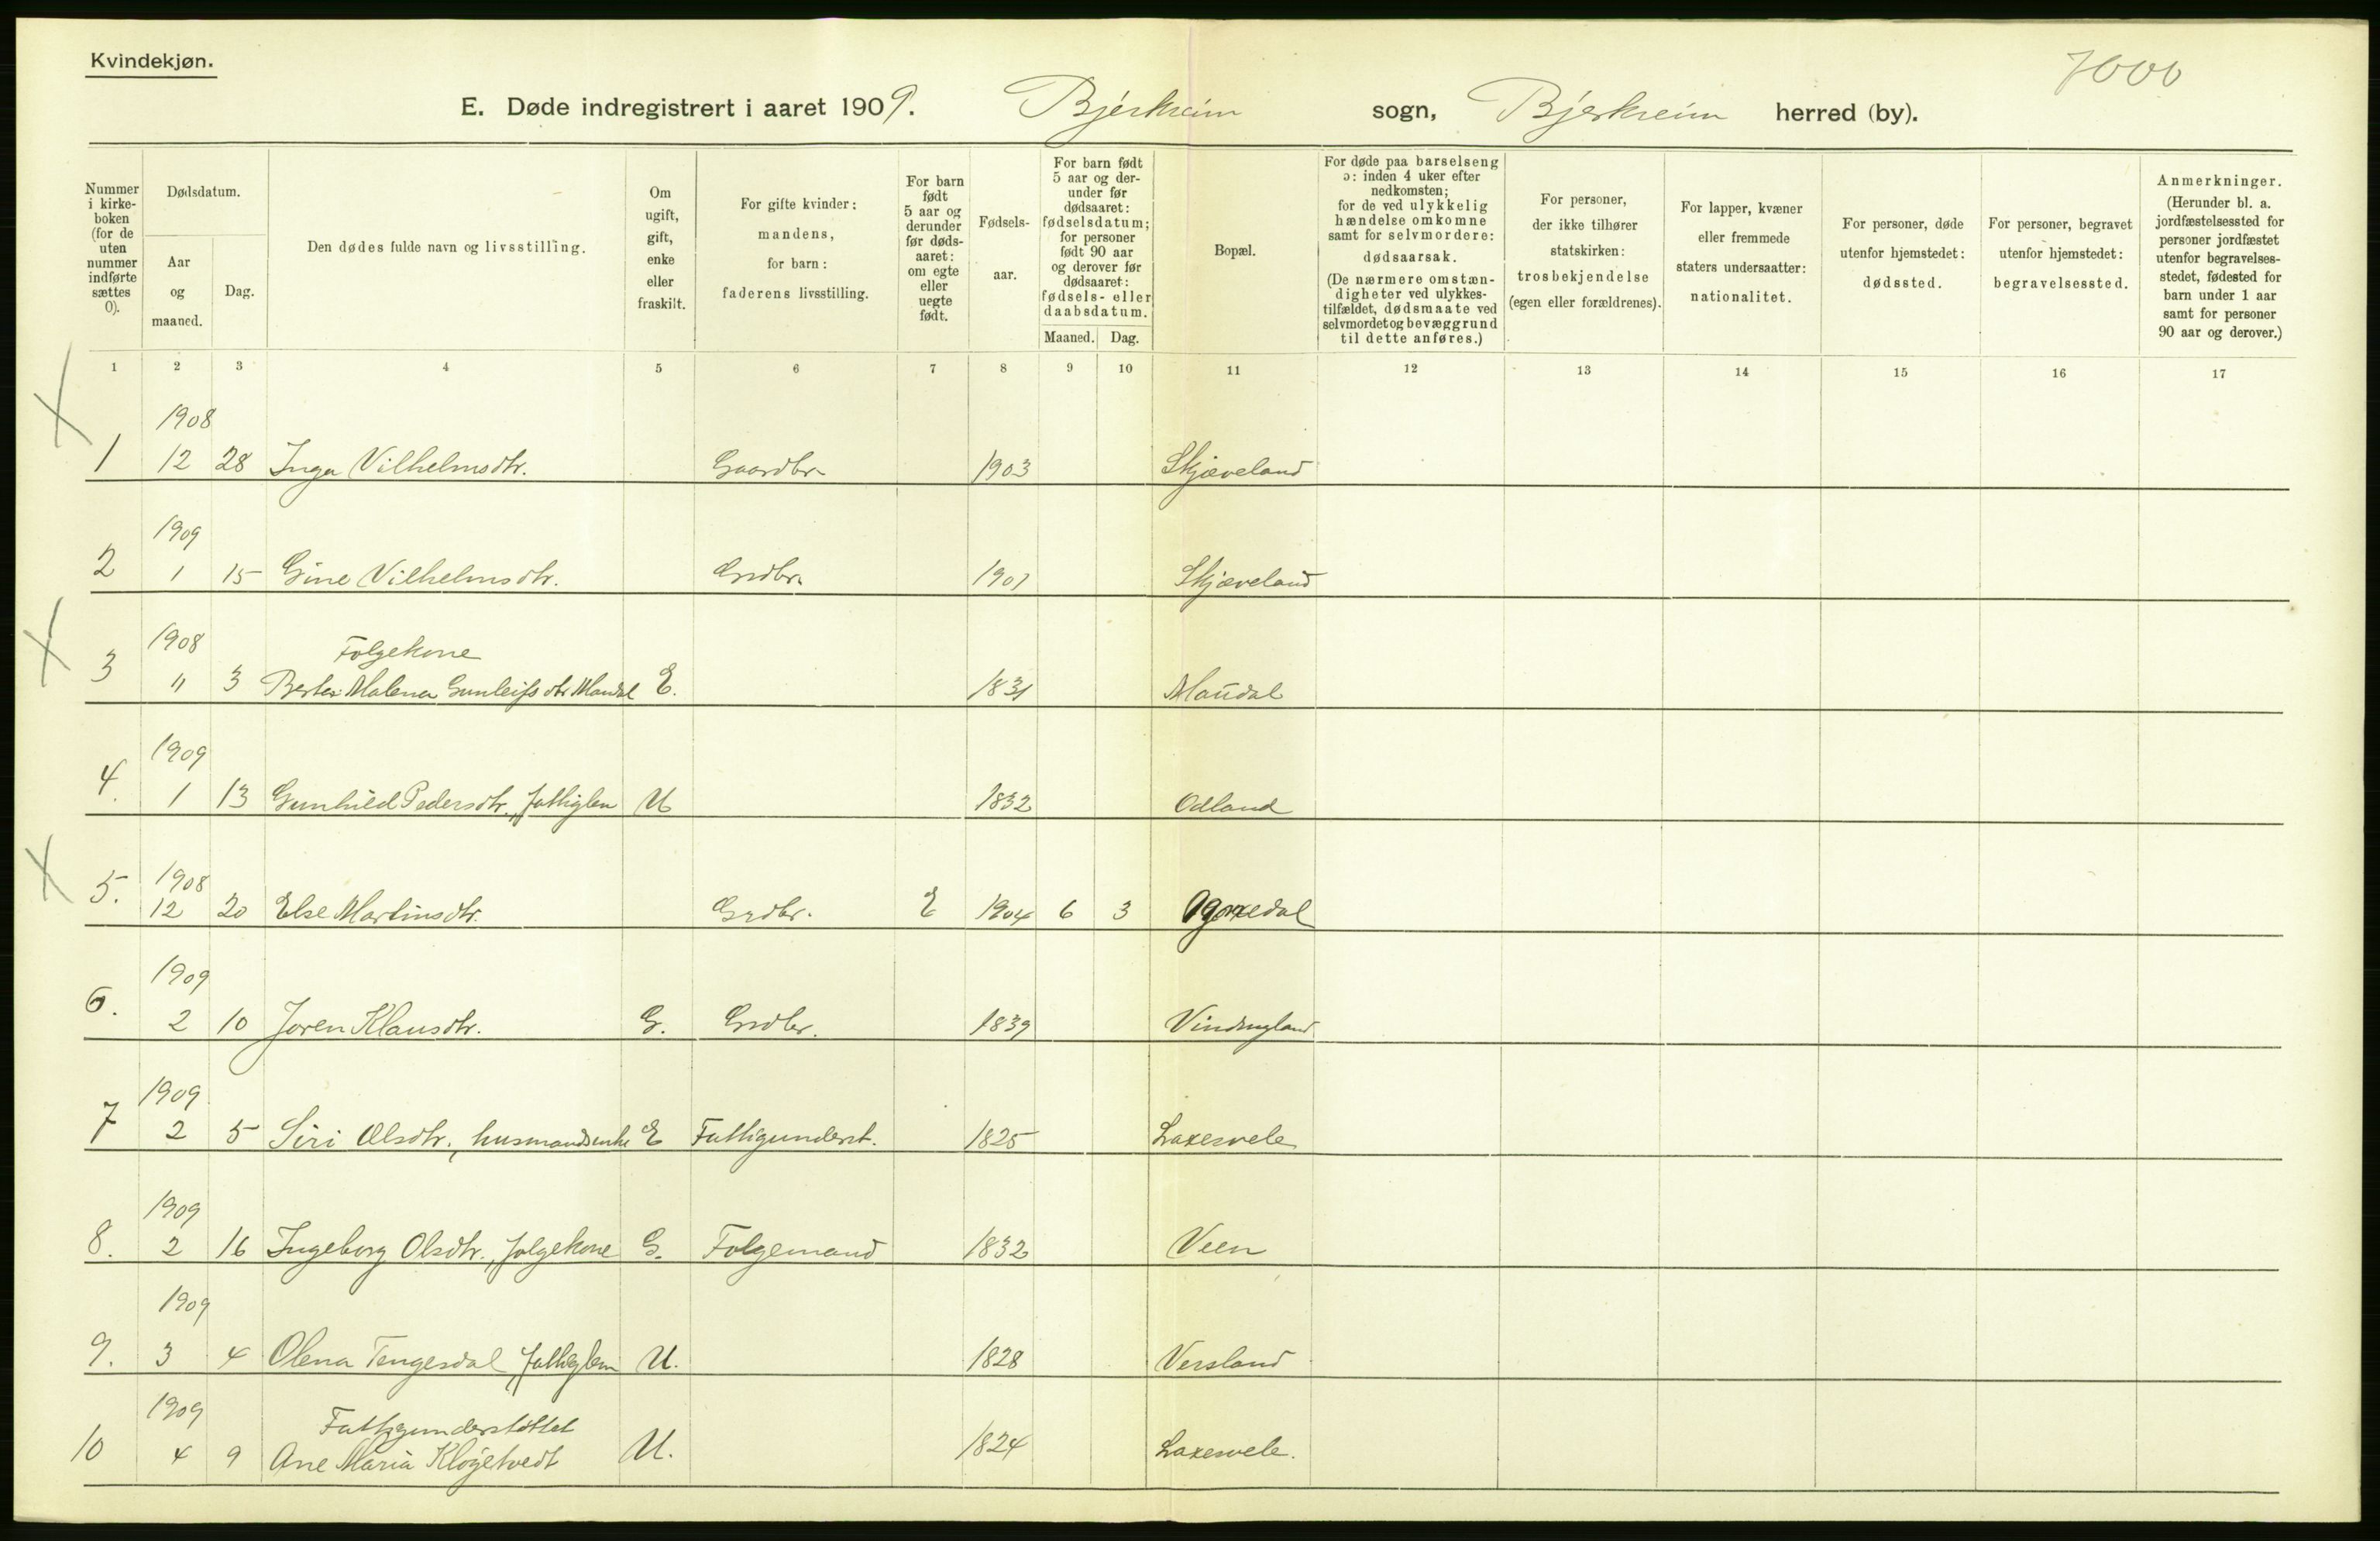 Kvindekjøn.
7000
E. Døde indregistrert i aaret 1909. Bjerkreim sogn, Bjerkreim herred (by).
Nummer i kirkeboken (for de uten nummer indførte sættes 0).
Dødsdatum.
Aar og maaned.
Dag.
Den dødes fulde navn og livsstilling.
Om ugift, gift, enke eller fraskilt.
For gifte kvinder: mandens, for barn: faderens livsstilling.
For barn født 5 aar og derunder før dødsaaret: om egte eller uegte født.
Fødselsaar.
For barn født 5 aar og derunder før dødsaaret: fødselsdatum; for personer født 90 aar og derover før dødsaaret: fødsels- eller daabsdatum.
Maaned. Dag.
Bopæl.
For døde paa barselseng ɔ: inden 4 uker efter nedkomsten; for de ved ulykkelig hændelse omkomne samt for selvmordere: dødsaarsak. (De nærmere omstændigheter ved ulykkestilfældet, dødsmaate ved selvmordet og bevæggrund til dette anføres.)
For personer, der ikke tilhører statskirken: trosbekjendelse (egen eller forældrenes).
For lapper, kvæner eller fremmede staters undersaatter: nationalitet.
For personer, døde utenfor hjemstedet: dødssted.
For personer, begravet utenfor hjemstedet: begravelsessted.
Anmerkninger. (Herunder bl. a. jordfæstelsessted for personer jordfæstet utenfor begravelsesstedet, fødested for barn under 1 aar samt for personer 90 aar og derover.)
1 2 3 4 5 6 7 8 9 10 11 12 13 14 15 16 17
1908
1 12 28 Inga Vilhelmsdtr. Gaardbr. 1903 Skjæveland
1909
2 1 15 Gine Vilhelmsdtr. Grdbr. 1907 Skjæveland
1908
Folgekone
3 " 3 Berte Malena Gunleifsdtr Maudal E. 1831 Maudal
1909
4. 1 13 Gunhild Pedersdtr., fattiglem U 1832 Odland
1908
5. 12 20 Else Martinsdtr. Grdbr. E 1904 6 3
1909
6. 2 10 Joren Klausdtr. G. Grdbr. 1839
1909
7 2 5 Siri Olsdtr., husmandsenke E Fattigunderst. 1825 Laxesvele
1909
8. 2 16 Ingeborg Olsdtr., folgekone G. Folgemand 1832 Veen
1909
9. 3 4 Olena Tengesdal, fattiglem U. 1828 Versland
1909
Fattigunderstøttet
10 4 9 Ane Maria Kløgetvedt U. 1824 Laxesvele.